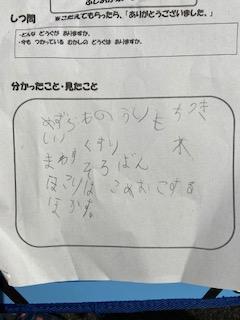 しつ問
※こたえてもらったら、「ありがとうございました。」
・どんな どうぐが ありますか。
・今も つかっている むかしの どうぐは ありますか。
分かったこと・見たこと
めずらしい ものの うりも ちつき
くすり 木
まわす そろばん
ほこりは こめを こする
ほかす。